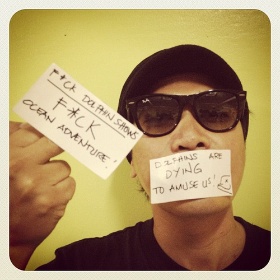 F*CK DOLPHIN SHOWS
F*CK
OCEAN ADVENTURE!
DOLPHINS ARE
DYING
TO AMUSE US!
Ray-Ban